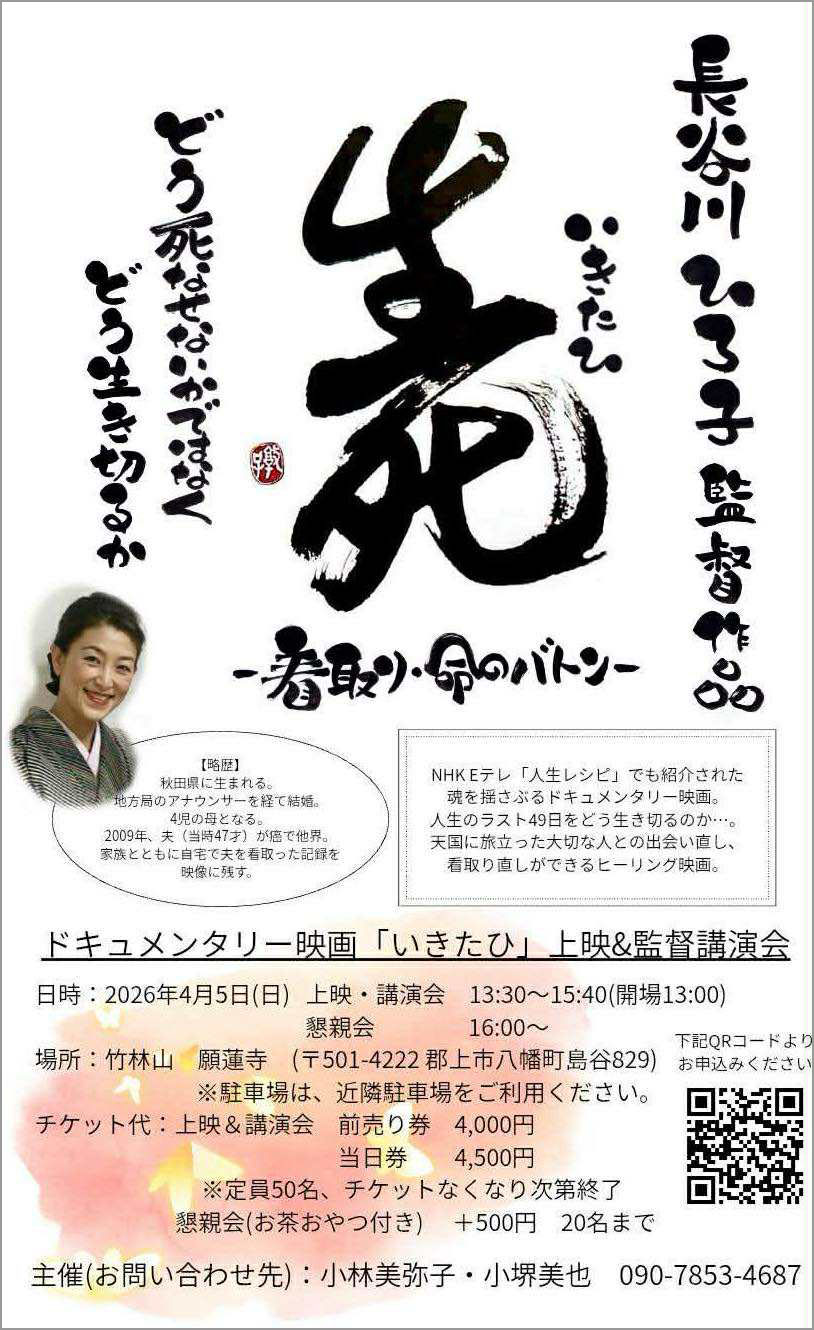 長谷川ひろ子監督作品
いきたひ
生死
どう死なせないかではなく
どう生き切るか
-看取り・命のバトン-
【略歴】
秋田県に生まれる。
地方局のアナウンサーを経て結婚。
4児の母となる。
2009年、夫（当時47才）が癌で他界。
家族とともに自宅で夫を看取った記録を
映像に残す。
NHK Eテレ「人生レシピ」でも紹介された
魂を揺さぶるドキュメンタリー映画。
人生のラスト49日をどう生き切るのか…。
天国に旅立った大切な人との出会い直し、
看取り直しができるヒーリング映画。
ドキュメンタリー映画「いきたひ」上映&監督講演会
日時：2026年4月5日(日) 上映・講演会 13:30～15:40(開場13:00)
懇親会 16:00～
場所：竹林山 願蓮寺 (〒501-4222 郡上市八幡町島谷829)
※駐車場は、近隣駐車場をご利用ください。
下記QRコードより
お申込みください
チケット代：上映＆講演会 前売り券 4,000円
当日券 4,500円
※定員50名、チケットなくなり次第終了
懇親会(お茶おやつ付き) ＋500円 20名まで
主催(お問い合わせ先)：小林美弥子・小堺美也 090-7853-4687